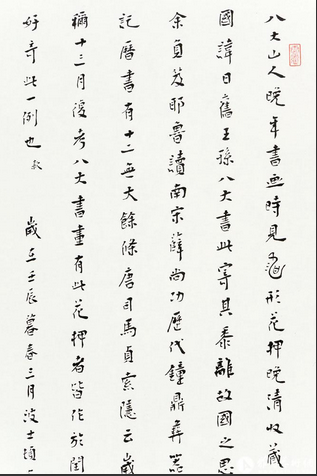 八大山人晚年書畫時見龜形花押晚清收藏
國諱日舊王孫八大書此寄其黍離故國之思
余貞芨耶魯讀南宋薛尚功歷代鐘鼎彝器
記曆書有十二無大餘條唐司馬貞索隱云歲
稱十三月復考八大書畫有此花押者皆作於閏
好奇此一例也
歲在壬辰暮春三月波士頓